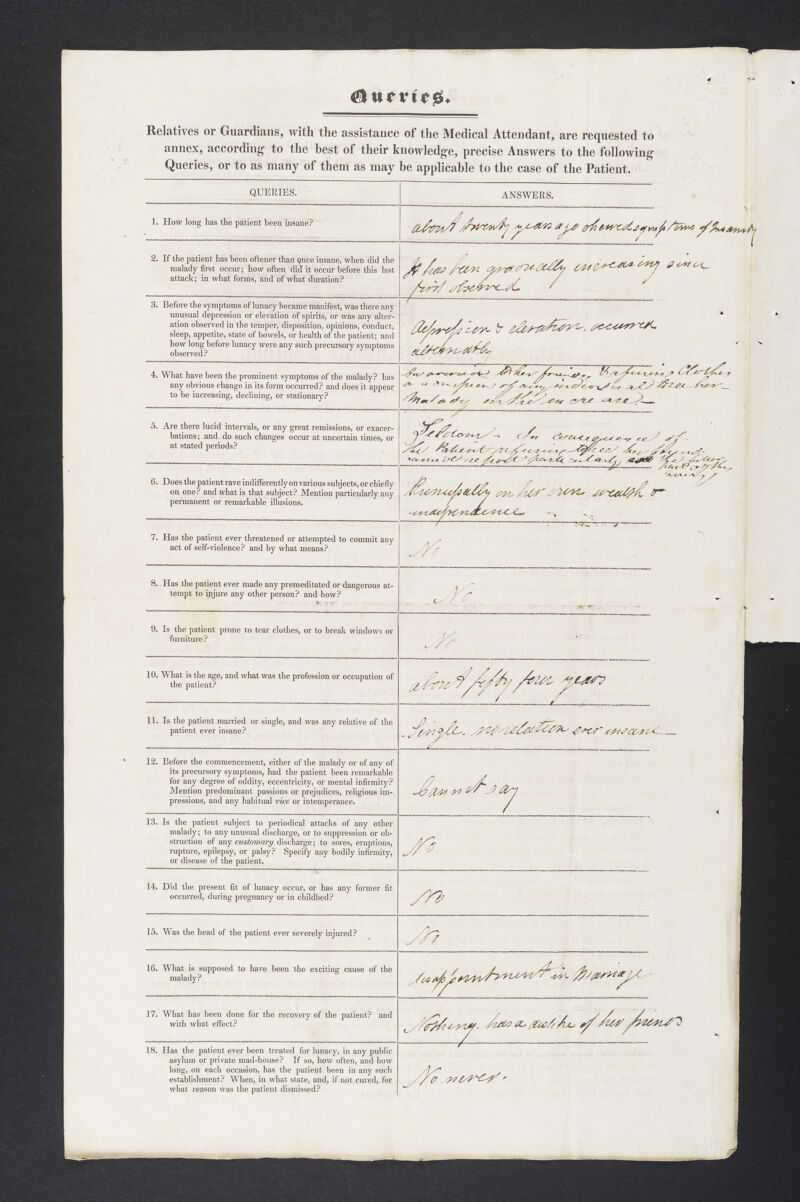 Queries.
Relatives or Guardians, with the assistance of the Medical Attendant, are requested to
annex, according to the best of their knowledge, precise Answers to the following
Queries, or to as many of them as may be applicable to the case of the Patient.
QUERIES.
ANSWERS.
1. How long has the patient been insane?
about twenty years ago shewed symptoms of Insanity
2. If the patient has been oftener than once insane, when did the
malady first occur; how often did it occur before this last
attack; in what forms, and of what duration?
It has been gradually increasing since
first observed
3. Before the symptoms of lunacy became manifest, was there any
unusual depression or elevation of spirits, or was any alter-
ation observed in the temper, disposition, opinions, conduct,
sleep, appetite, state of bowels, or health of the patient; and
how long before lunacy were any such precursory symptoms
observed?
Depression & elevation occurred
alternately
4. What have been the prominent symptoms of the malady? has
any obvious change in its form occurred? and does it appear
to be increasing, declining, or stationary?
to her friends refusing Clothes
of any her
Malady on the increase
5. Are there lucid intervals, or any great remissions, or exacer-
bations; and do such changes occur at uncertain times, or
at stated periods?
Seldom - In consequence of
the Patient refusing
cannot report particularly
6. Does the patient rave indifferently on various subjects, or chiefly
on one? and what is that subject? Mention particularly any
permanent or remarkable illusions.
Principally on her own wealth &
independence
7. Has the patient ever threatened or attempted to commit any
act of self-violence? and by what means?
No
8. Has the patient ever made any premeditated or dangerous at-
tempt to injure any other person? and how?
No
9. Is the patient prone to tear clothes, or to break windows or
furniture?
No
10. What is the age, and what was the profession or occupation of
the patient?
about fifty four years
11. Is the patient married or single, and was any relative of the
patient ever insane?
Single. no relation ever insane
12. Before the commencement, either of the malady or of any of
its precursory symptoms, had the patient been remarkable
for any degree of oddity, eccentricity, or mental infirmity?
Mention predominant passions or prejudices, religious im-
pressions, and any habitual vice or intemperance.
Cannot say
13. Is the patient subject to periodical attacks of any other
malady; to any unusual discharge, or to suppression or ob-
struction of any customary discharge; to sores, eruptions,
rupture, epilepsy, or palsy? Specify any bodily infirmity,
or disease of the patient.
No
14. Did the present fit of lunacy occur, or has any former fit
occurred, during pregnancy or in childbed?
No
15. Was the head of the patient ever severely injured?
No
16. What is supposed to have been the exciting cause of the
malady?
disappointment in Marriage
17. What has been done for the recovery of the patient? and
with what effect?
Nothing. has a dislike of her friends
18. Has the patient ever been treated for lunacy, in any public
asylum or private mad-house? If so, how often, and how
long, on each occasion, has the patient been in any such
establishment? When, in what state, and, if not cured, for
what reason was the patient dismissed?
No never.